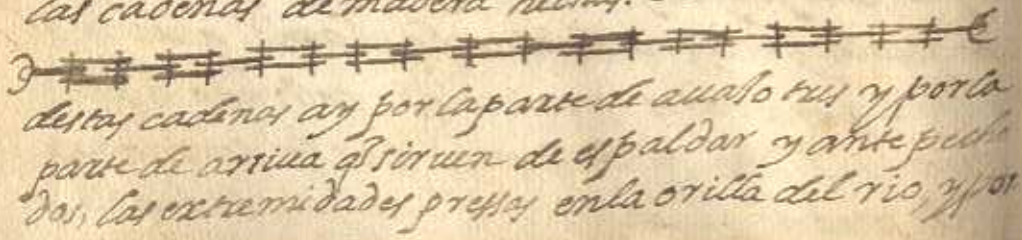 las cadenas de madera hechas.
destas cadenas ay por la parte de auaso tres y por la
parte de arriua q̃ siruen de espaldar y ante pech
dos, las extremidades pressas en la orilla del rio, y por